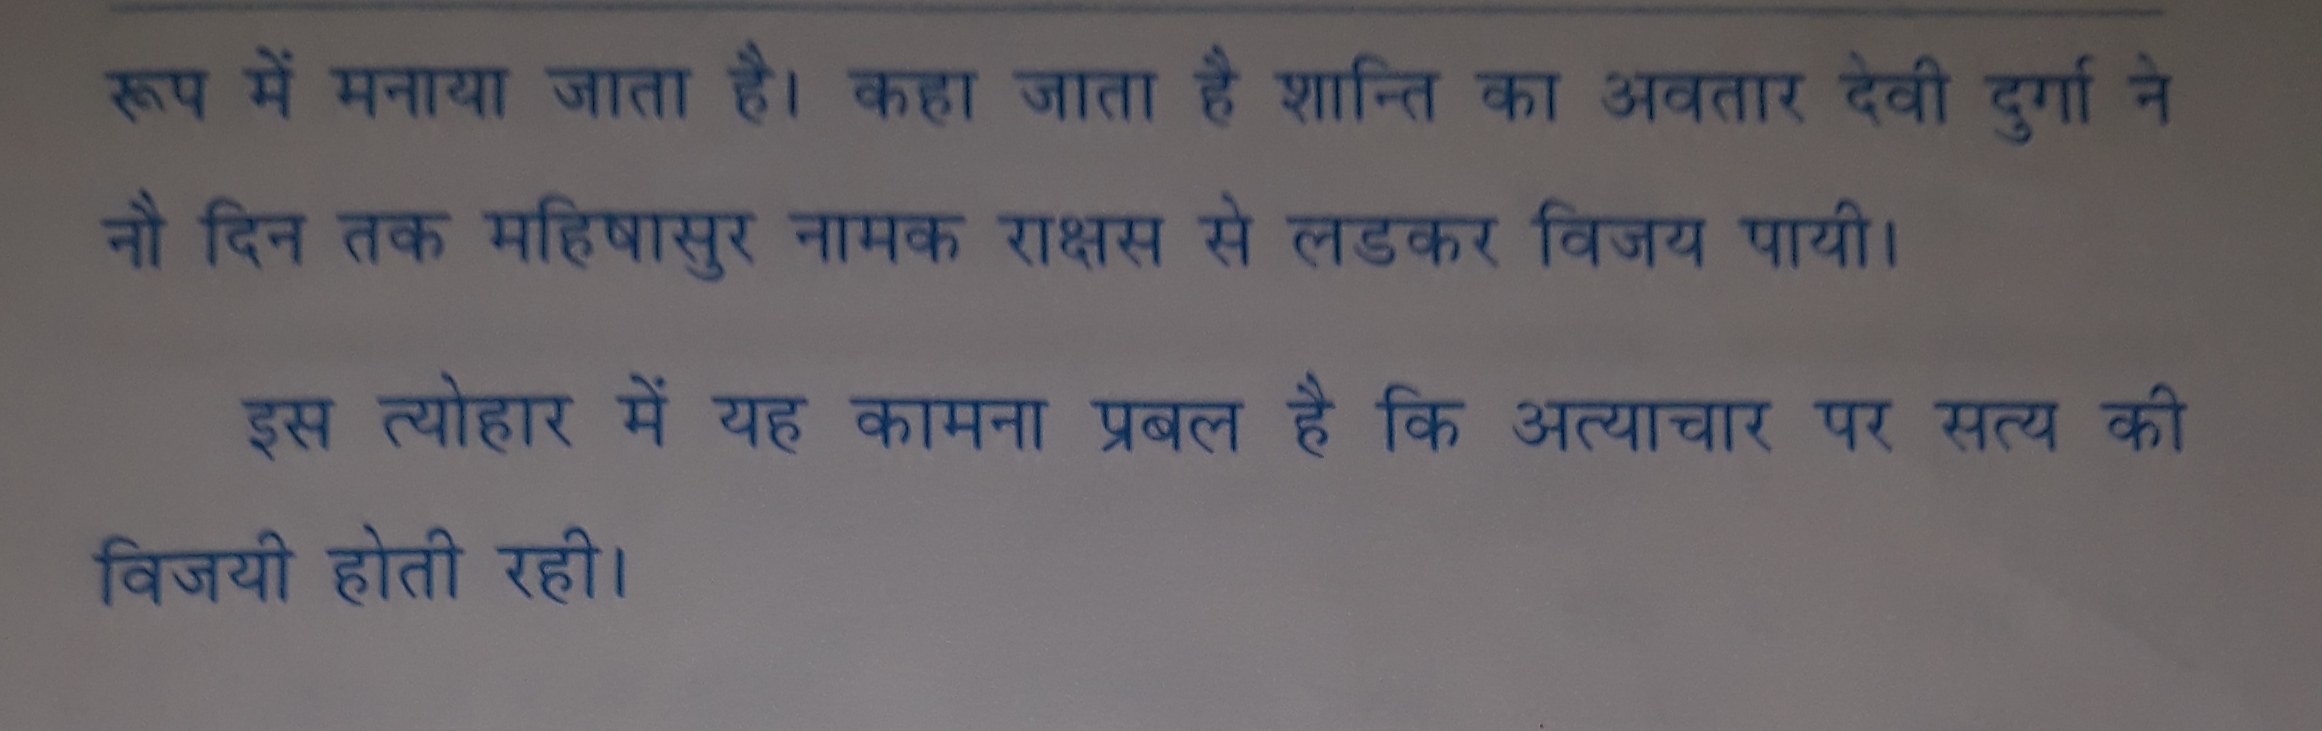 रूप में मनाया जाता है। कहा जाता है शान्ति का अवतार देवी दुर्गा ने
नौ दिन तक महिषासुर नामक राक्षस से लडकर विजय पायी।
इस त्योहार में यह कामना प्रबल है कि अत्याचार पर सत्य की
विजयी होती रही।